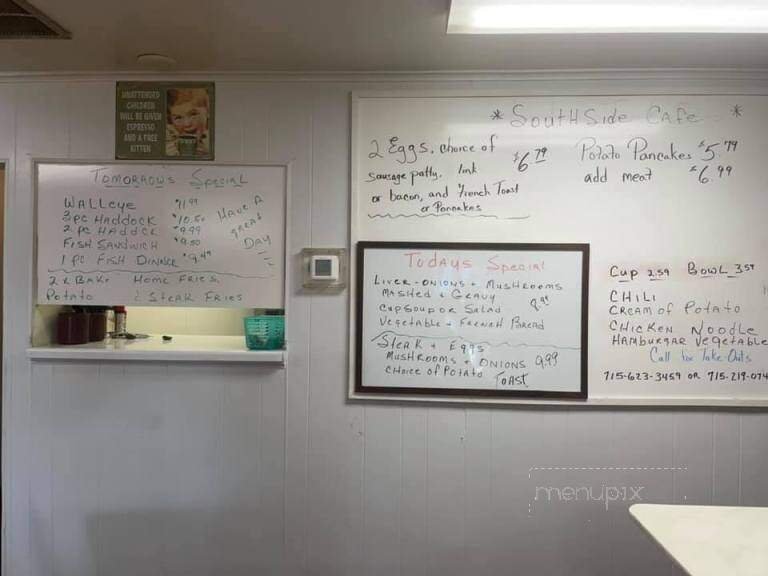 UNATTENDED
CHILDREN
WILL BE GIVEN
ESPRESSO
AND A FREE
KITTEN
TOMORROW'S SPECIAL
WALLEYE $11.99
3 PC HADDOCK $10.50
2 PC HADDOCK $9.99
FISH SANDWICH $9.50
1 PC FISH DINNER $9.49
HAVE A
GREAT
DAY
2 x BAKE HOME FRIES
POTATO & STEAK FRIES
* SouthSide Cafe *
2 Eggs, choice of
sausage patty, link
or bacon, and French Toast
or Pancakes
$6.79
Potato Pancakes $5.79
add meat $6.99
TODAYS SPECIAL
LIVER - ONIONS + MUSHROOMS
MASHED & GRAVY
CUP SOUP OR SALAD
VEGETABLE + FRENCH BREAD
9.99
STEAK + EGGS
MUSHROOMS + ONIONS 9.99
CHOICE OF POTATO TOAST
Cup 2.59 Bowl 3.59
CHILI
CREAM OF POTATO
CHICKEN NOODLE
HAMBURGAR VEGETABLE
Call for Take-Outs
715-623-3459 OR 715-219-074
menupix